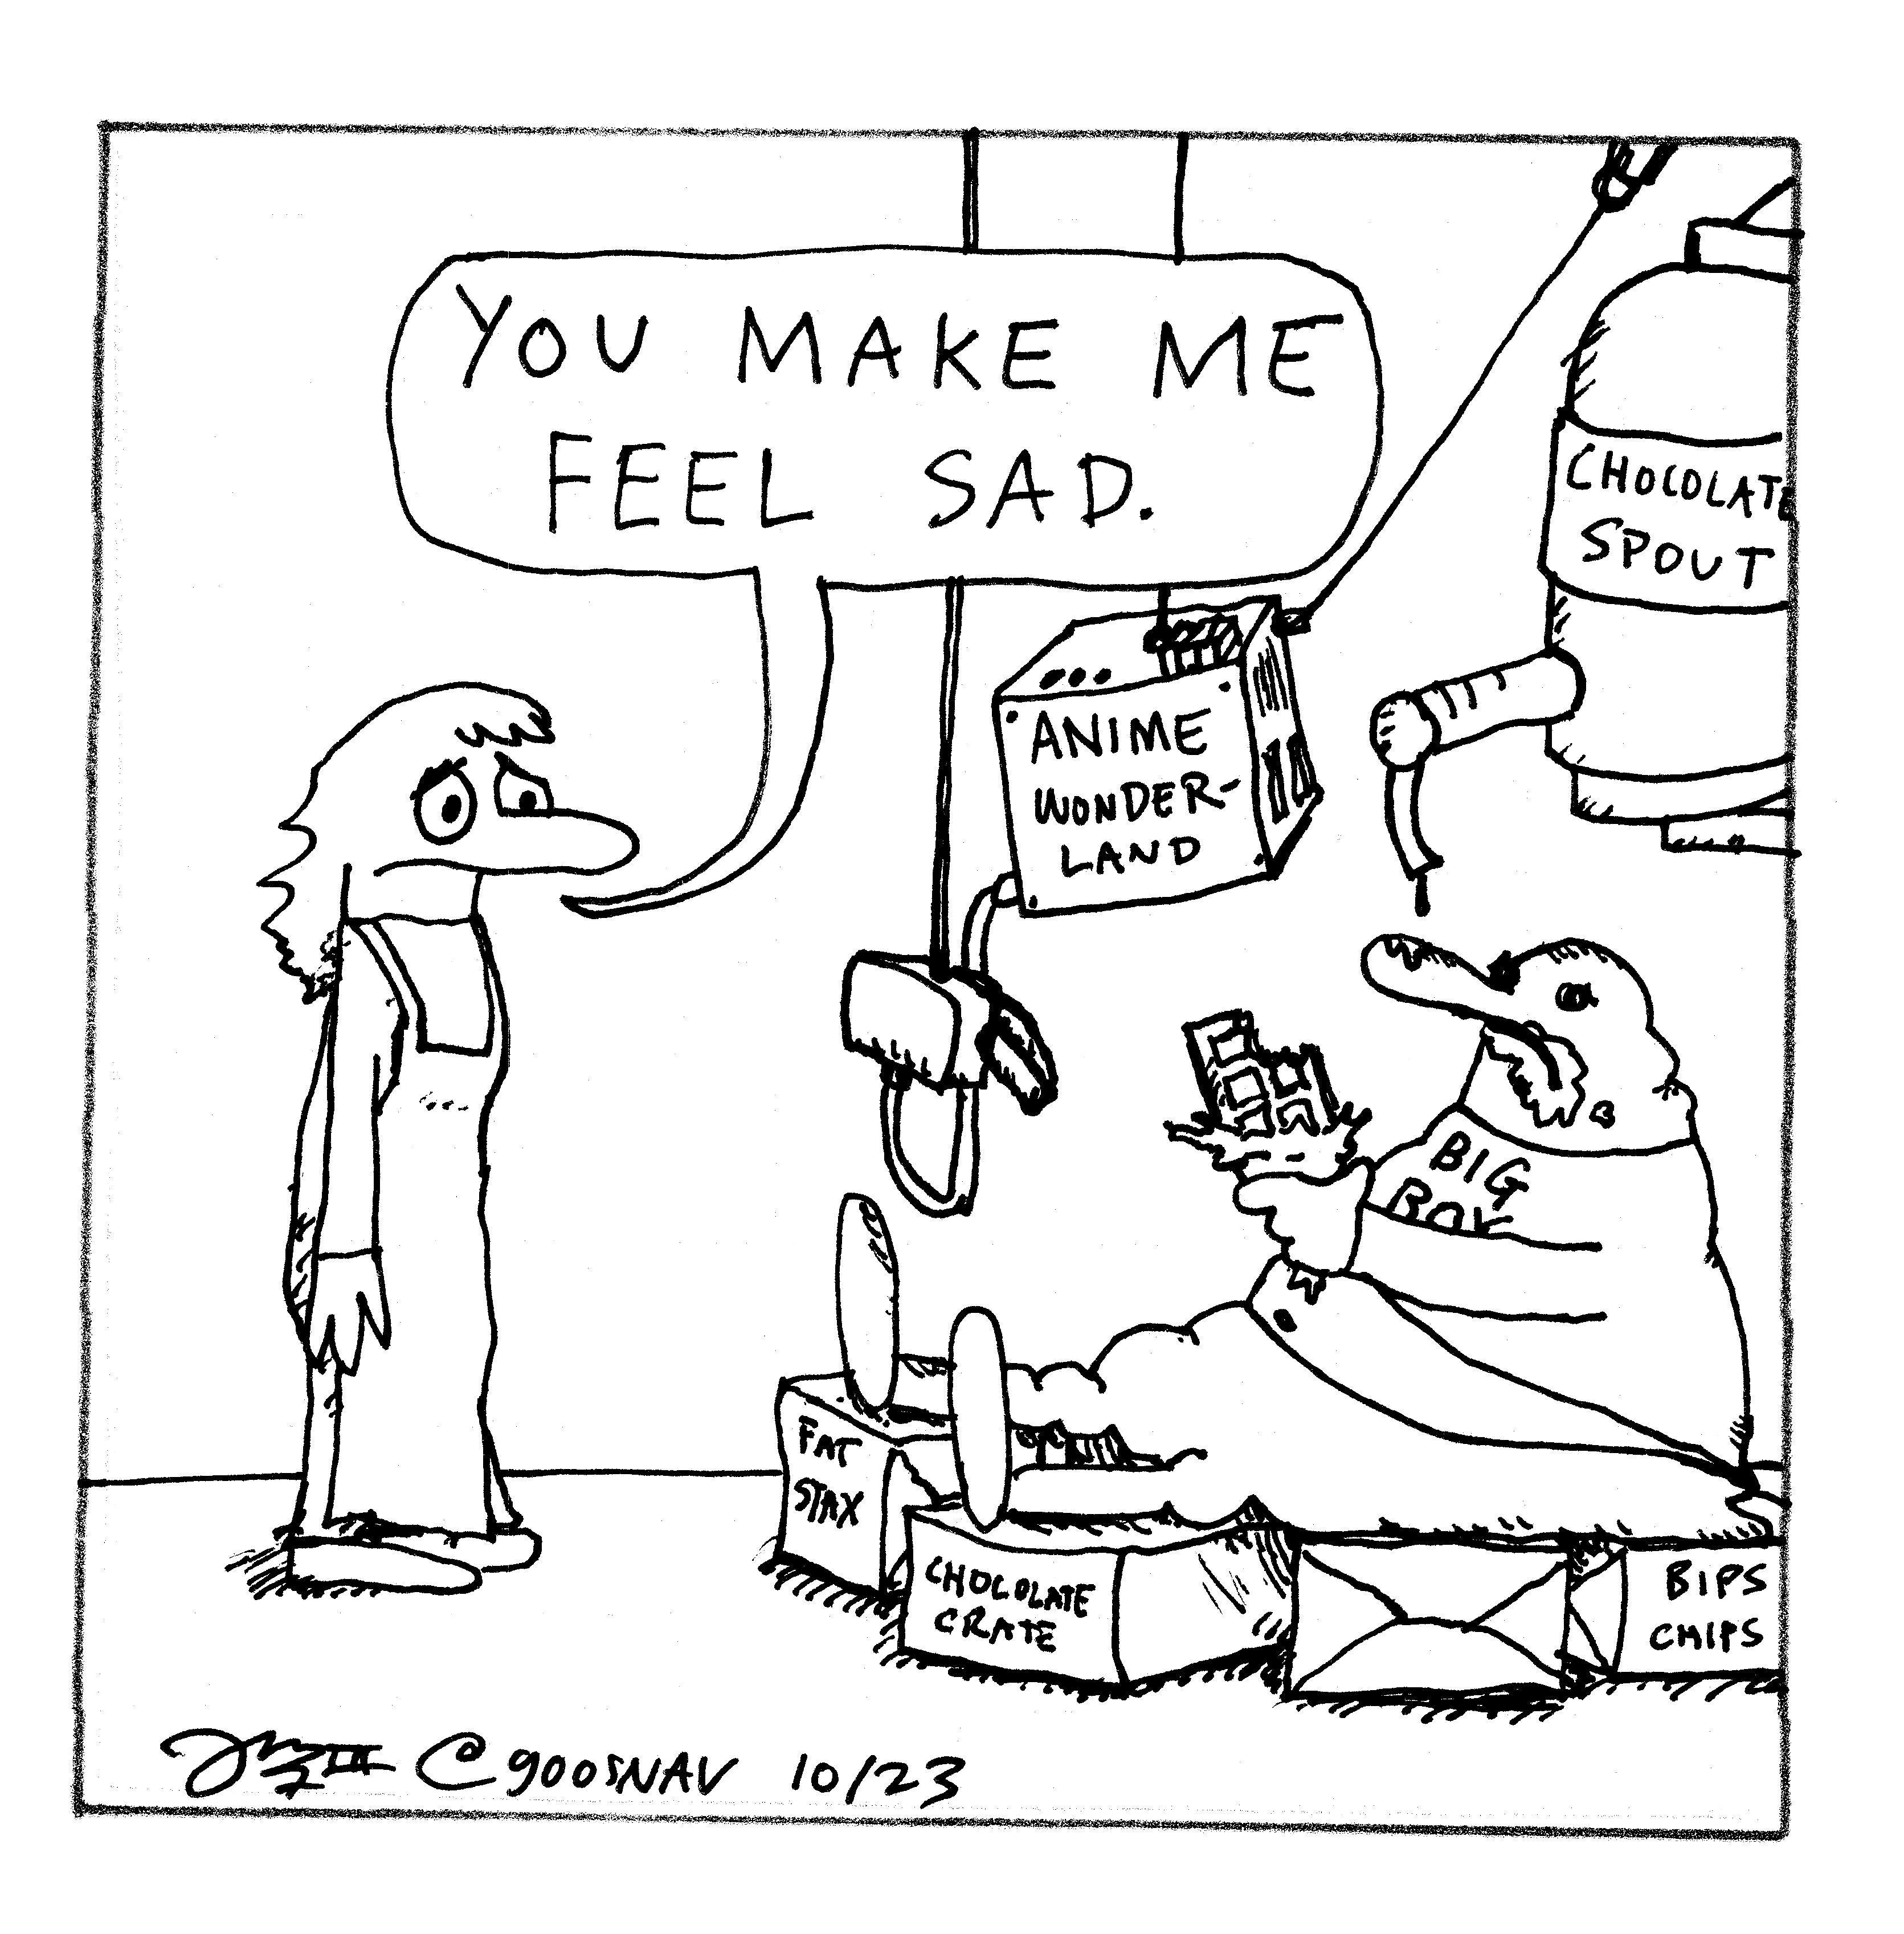 YOU MAKE ME
FEEL SAD.
CHOCOLATE
SPOUT
ANIME
WONDER-
LAND
BIG
BOY
FAT
STAX
CHOCOLATE
CRATE
BIPS
CHIPS
@goosNAV 10/23